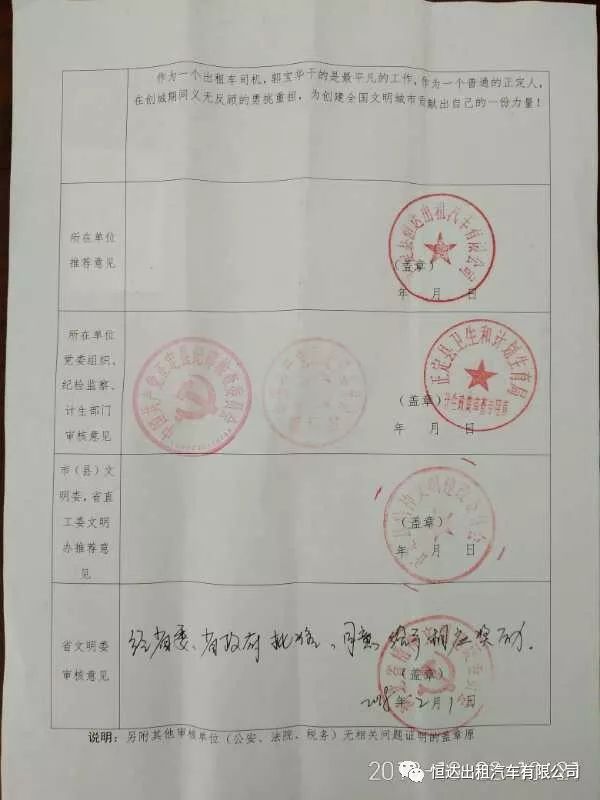 作为一个出租车司机，郭宝华干的是最平凡的工作，作为一个普通的正定人，
在创城期间义无反顾的勇挑重担，为创建全国文明城市贡献出自己的一份力量！
所在单位
推荐意见
正定县恒达出租汽车有限公司
（盖章）
年 月 日
所在单位
党委组织、
纪检监察、
计生部门
审核意见
正定县卫生和计划生育局
（盖章）
年 月 日
市（县）文
明委，省直
工委文明
办推荐意
见
（盖章）
年 月 日
省文明委
审核意见
经省委、省政府批准，同意给予相应奖励。
（盖章）
2018年2月1日
说明：另附其他审核单位（公安、法院、税务）无相关问题证明的盖章原
恒达出租汽车有限公司